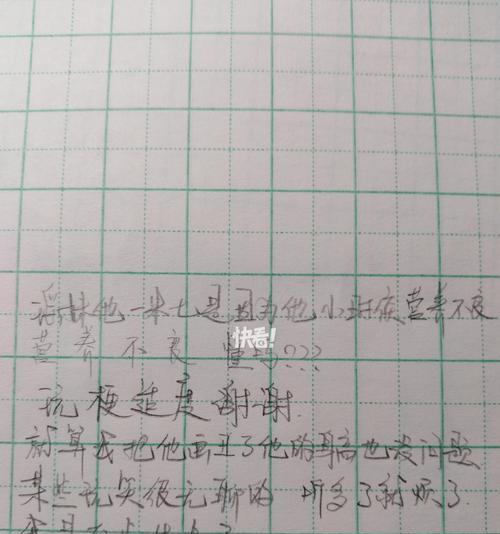 他一米七是因为他小时候营养不良
营养不良 懂吗???
快看!
玩梗适度谢谢.
就算我把他画丑了他的耳高也没问题
某些玩笑很无聊的 听多了就烦了.